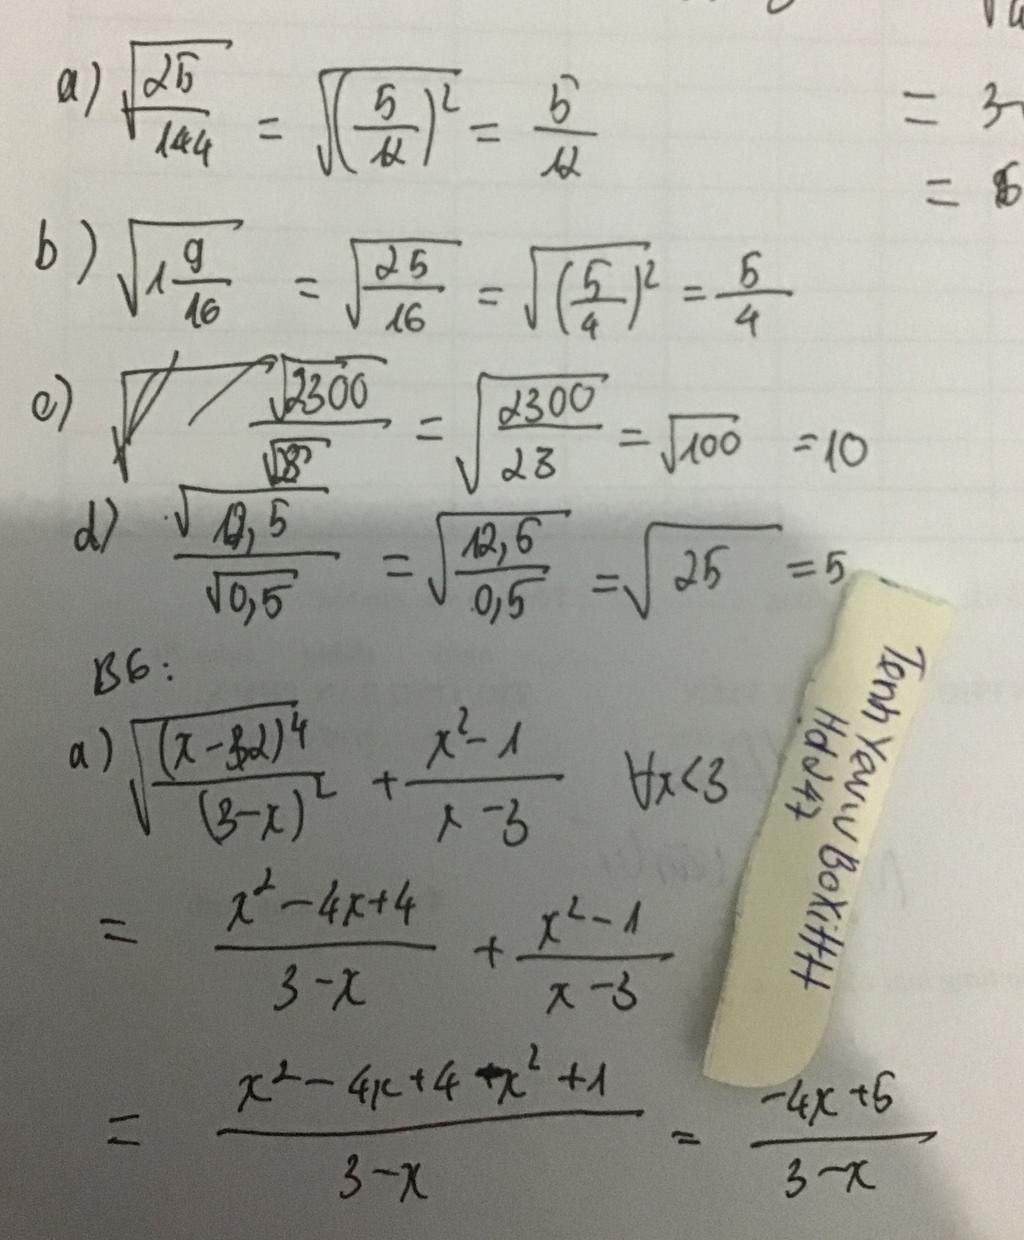 a) √(25/144) = √((5/12)²) = 5/12
= 3
=
b) √(1 9/16) = √(25/16) = √((5/4)²) = 5/4
c) √2300/√23 = √(2300/23) = √100 = 10
d) √12,5/√0,5 = √(12,5/0,5) = √25 = 5
B6:
a) √((x-2)⁴/(3-x)²) + (x²-1)/(x-3) ∀x<3
= (x²-4x+4)/(3-x) + (x²-1)/(x-3)
= (x²-4x+4-x²+1)/(3-x) = (-4x+5)/(3-x)